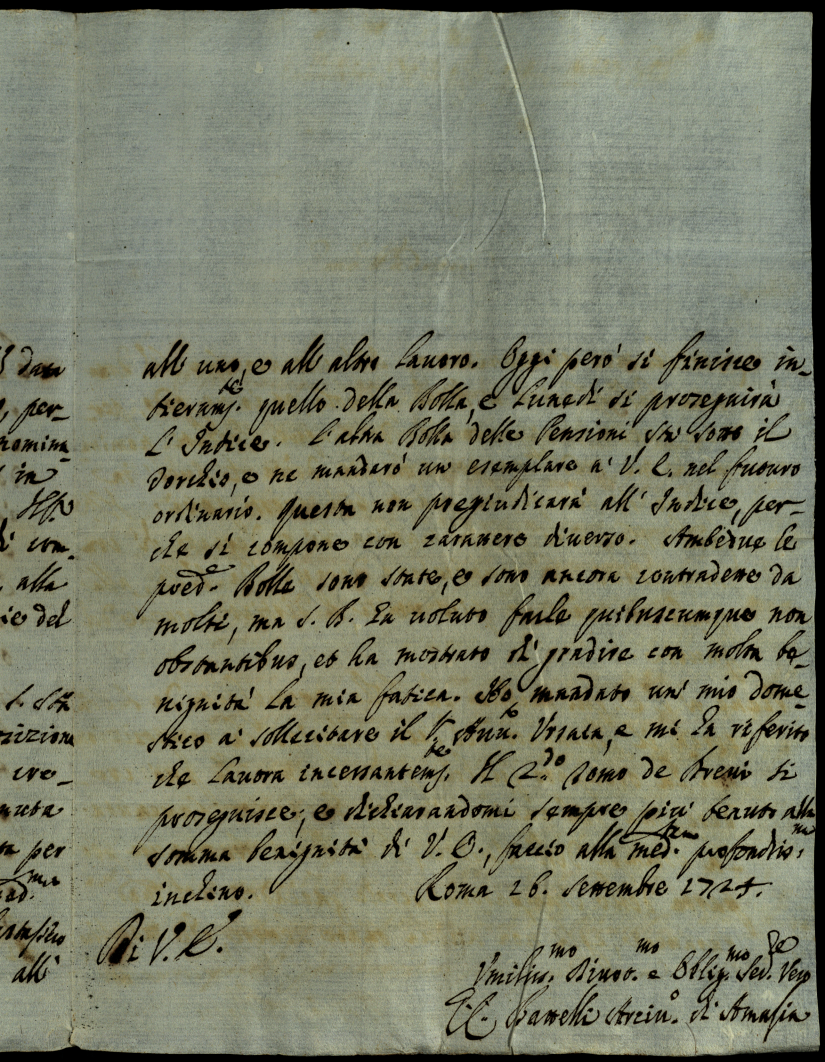 all' uno, e all' altro lauoro. Oggi però si finisce in-
tieram.te quello della Bolla, e Lunedì si proseguirà
l' Indice. L'altra Bolla delle Pensioni stà sotto il
Torchio, e ne mandarò un esemplare à V. E. nel futuro
ordinario. Questa non pregiudicarà all' Indice, per-
che si compone con carattere diuerso. Ambedue le
pred.e Bolle sono state, e sono ancora contradette da
molti, ma S. B. ha uoluto farle quibuscumque non
obstantibus, et ha mostrato di gradire con molta be-
nignità la mia fatica. Ho mandato un' mio dome-
stico à sollecitare il Auu.o Vrsaia, e mi ha riferito
che lauora incessantem.te Il 2.do Tomo de Breui si
proseguisce, e dichiarandomi sempre più tenuto alla
somma benignità di V. E., faccio alla med.ma profondiss.mo
inchino. Roma 26. Settembre 1724.
Di V. E.
Vmiliss.mo Diuot.mo e Oblig.mo Ser.re Vero
Battelli Arciu.o di Amasia
dell
per-
nomina-
in
di com-
alla
ie del
cre-
per
all'